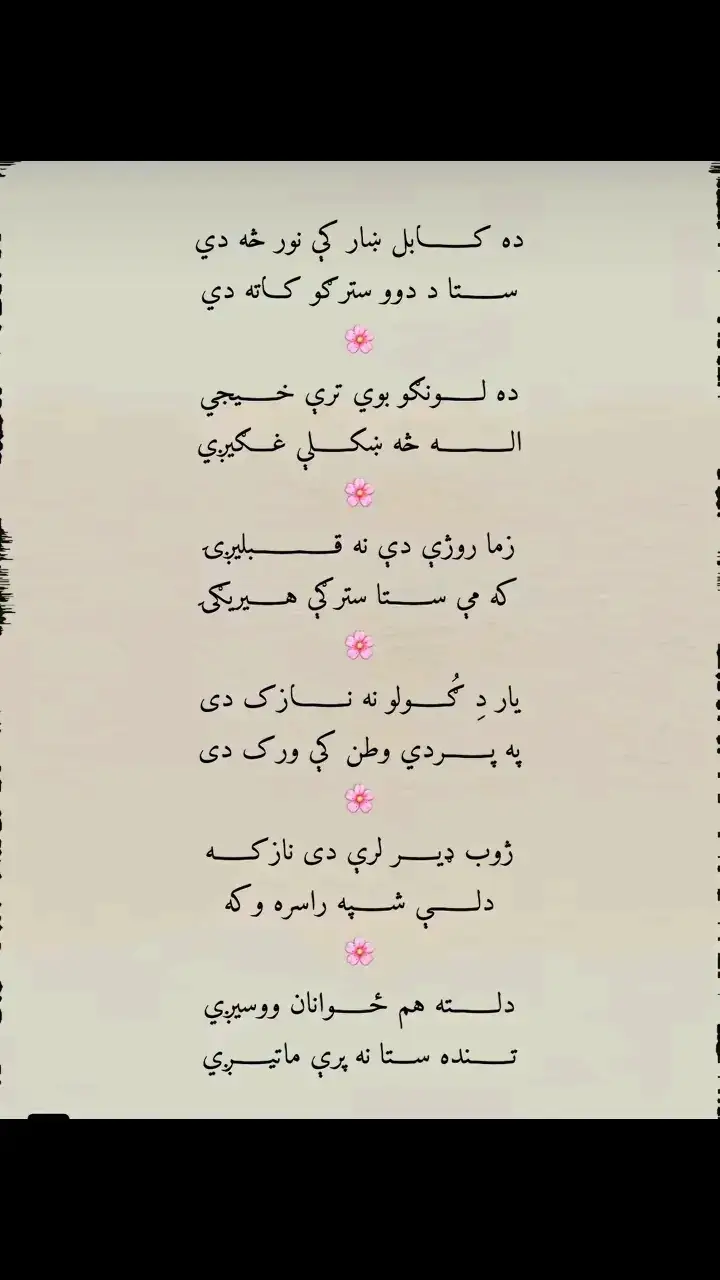 ده کابل ښار کې نور څه دي
ستا د دوو سترګو کاته دي
ده لونګو بوي ترې خیجي
اله څه ښکلې غګیږي
زما روژې دې نه قبلیږۍ
که مې ستا سترګې هیریګۍ
یار دِ ګُولو نه نازک دی
په پردي وطن کې ورک دی
ژوب ډیر لرې دی نازکه
دلې شپه راسره وکه
دلته هم ځوانان ووسیږي
تنده ستا نه پرې ماتیږي